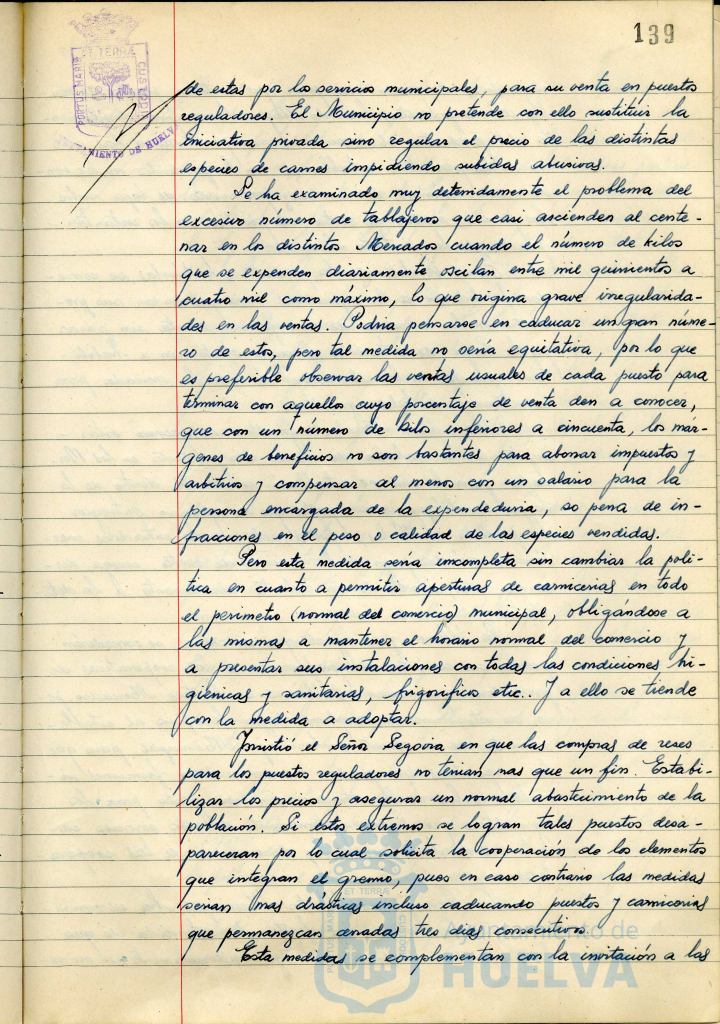 139
PORTUS MARIS ET TERRAE CUSTODIA
AYUNTAMIENTO DE HUELVA
de estas por los servicios municipales, para su venta en puestos
reguladores. El Municipio no pretende con ello sustituir la
iniciativa privada sino regular el precio de las distintas
especies de carnes impidiendo subidas abusivas.
Se ha examinado muy detenidamente el problema del
excesivo número de tablajeros que casi ascienden al cente-
nar en los distintos Mercados cuando el número de kilos
que se expenden diariamente oscilan entre mil quinientos a
cuatro mil como máximo, lo que origina grave irregularida-
des en las ventas. Podria pensarse en caducar un gran núme-
ro de estos, pero tal medida no seria equitativa, por lo que
es preferible observar las ventas usuales de cada puesto para
terminar con aquellos cuyo porcentaje de venta den a conocer,
que con un número de kilos inferiores a cincuenta, los már-
genes de beneficios no son bastantes para abonar impuestos y
arbitrios y compensar al menos con un salario para la
persona encargada de la expendeduria, so pena de in-
fracciones en el peso o calidad de las especies vendidas.
Pero esta medida seria incompleta sin cambiar la poli-
tica en cuanto a permitir aperturas de carnicerias en todo
el perimetro (normal del comercio) municipal, obligándose a
las mismas a mantener el horario normal del comercio y
a presentar sus instalaciones con todas las condiciones hi-
gienicas y sanitarias, frigorificos etc.. Y a ello se tiende
con la medida a adoptar.
Insistió el Señor Segovia en que las compras de reses
para los puestos reguladores no tenian mas que un fin. Estabi-
lizar los precios y asegurar un normal abastecimiento de la
población. Si estos extremos se logran tales puestos desa-
pareceran por lo cual solicita la cooperación de los elementos
que integran el gremio, pues en caso contrario las medidas
serian mas drásticas incluso caducando puestos y carnicerias
que permanezcan cerradas tres dias consecutivos.
Esta medidas se complementan con la invitación a las
Ayuntamiento de
HUELVA